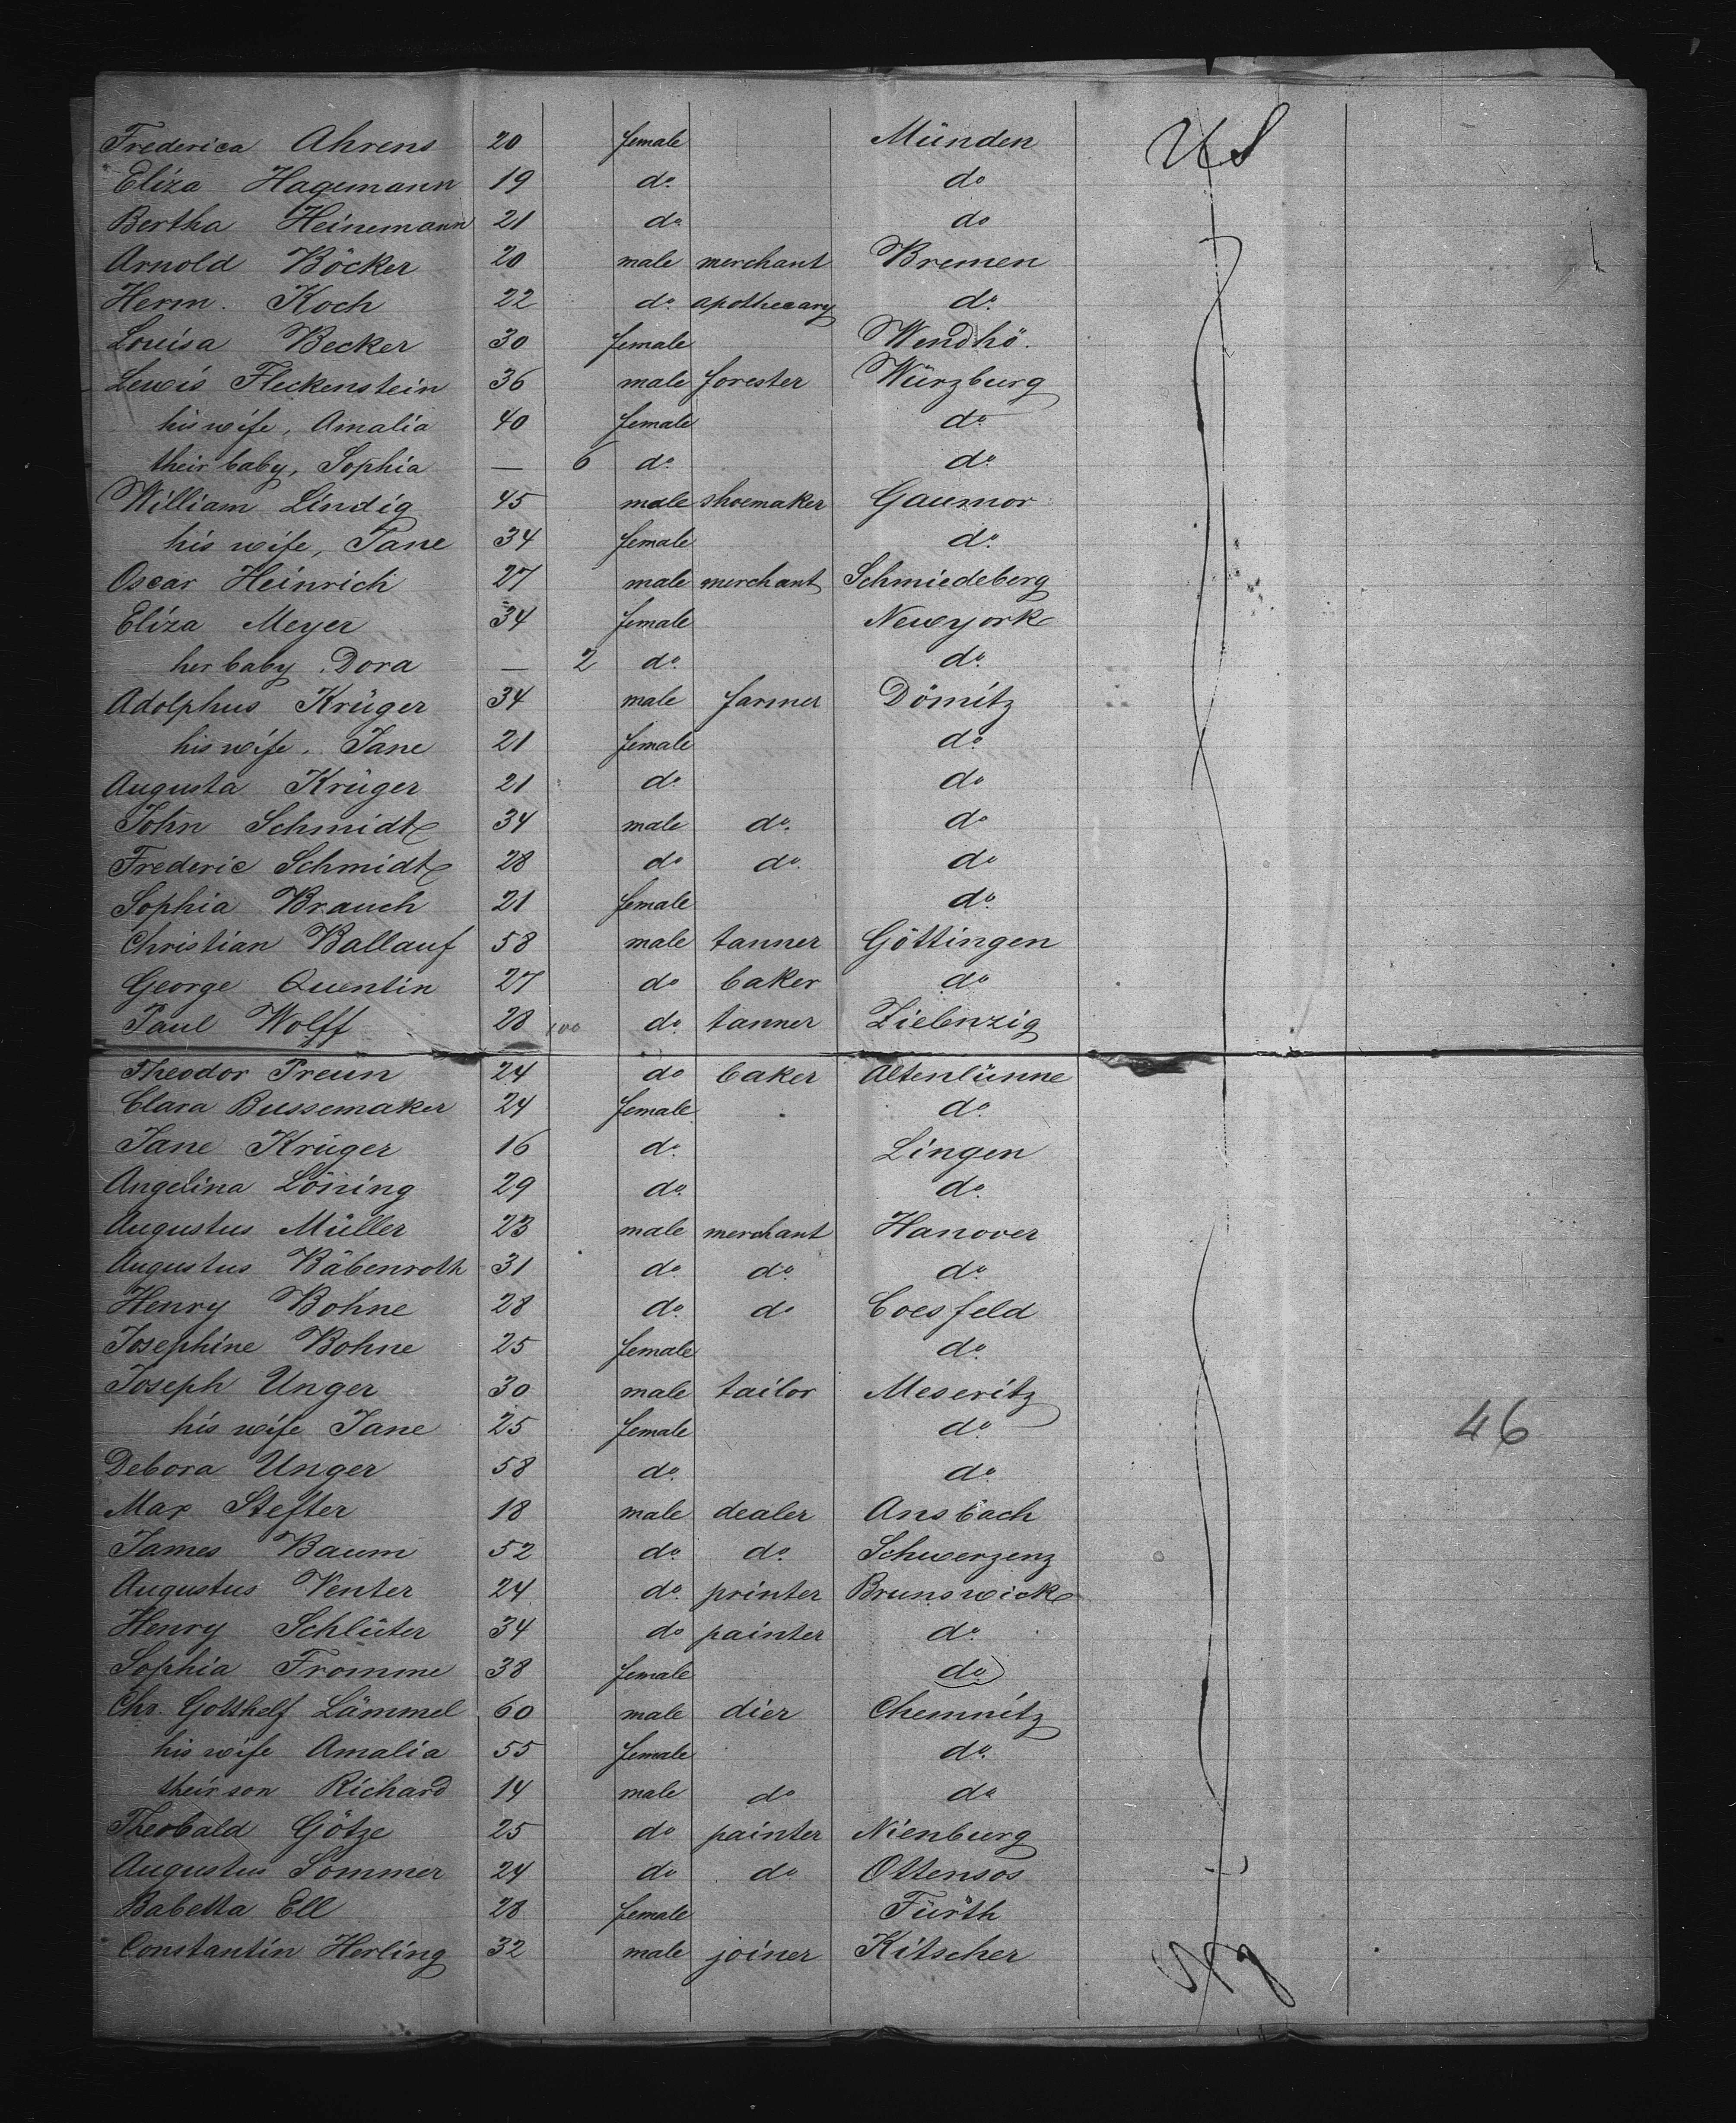 Frederica Ahrens 20 female Münden US
Eliza Hagemann 19 do do
Bertha Heinemann 21 do do
Arnold Böcker 20 male merchant Bremen
Herm. Koch 22 do apothecary do
Louisa Becker 30 female Wendhö.
Lewis Fleckenstein 36 male forester Würzburg
his wife, Amalia 40 female do
their baby, Sophia — 6 do do
William Lindig 45 male shoemaker Gaumor
his wife, Jane 34 female do
Oscar Heinrich 27 male merchant Schmiedeberg
Eliza Meyer 34 female Newyork
her baby, Dora — 2 do do
Adolphus Krüger 34 male farmer Dömitz
his wife, Jane 21 female do
Augusta Krüger 21 do do
John Schmidt 34 male do do
Frederic Schmidt 28 do do do
Sophia Brauch 21 female do
Christian Ballauf 58 male tanner Göttingen
George Quentin 27 do baker do
Paul Wolff 28 100 do tanner Zielenzig
Theodor Preun 24 do baker Altenlünne
Clara Bussemaker 24 female do
Jane Krüger 16 do Lingen
Angelina Löning 29 do do
Augustus Müller 23 male merchant Hanover
Augustus Bäbenroth 31 do do do
Henry Bohne 28 do do Coesfeld
Josephine Bohne 25 female do
Joseph Unger 30 male tailor Meseritz
his wife Jane 25 female do 46
Debora Unger 58 do do
Max Stefter 18 male dealer Ansbach
James Baum 52 do do Schwerzenz
Augustus Venter 24 do printer Brunswick
Henry Schlüter 34 do painter do
Sophia Fromme 38 female do
Chr. Gotthelf Lämmel 60 male dier Chemnitz
his wife Amalia 55 female do
their son Richard 14 male do do
Theobald Götze 25 do painter Nienburg
Augustus Sommer 24 do do Ottensos
Babetta Ell 28 female Fürth
Constantin Herling 32 male joiner Kitscher